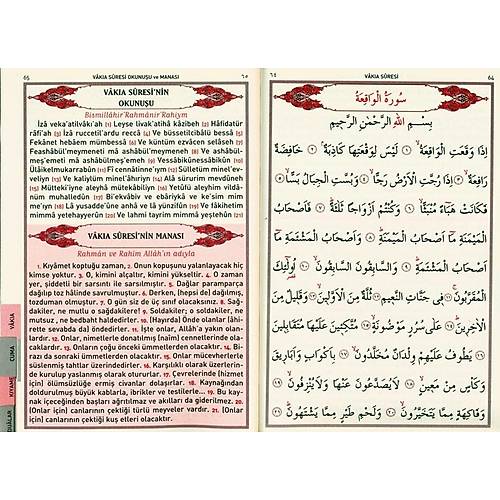 65 VÂKIA SÛRESİ OKUNUŞU ve MANASI ٦٥
VÂKIA SÛRESİ'NİN
OKUNUŞU
Bismillâhir'Rahmânir'Rahıym
İzâ veka'atilvâkı'ah (1) Leyse livak'atihâ kâzibeh (2) Hâfidatür
râfi'ah (3) İzâ ruccetil'ardu reccâ (4) Ve büssetilcibâlü bessâ (5)
Fekânet hebâem mümbessâ (6) Ve küntüm ezvâcen selâseh (7)
Feashâbül'meymeneti mâ ashâbül'meymeneh (8) Ve ashâbül-
meş'emeti mâ ashâbülmeş'emeh (9) Vessâbikûnessâbikûn (10)
Ülâikelmukarrabûn (11) Fî cennâtinne'ıym (12) Sülletüm minel'ev-
veliyn (13) Ve kaliylüm minel'âhıriyn (14) Alâ sürurim mevdûneh
(15) Mütteki'iyne aleyhâ mütekâbiliyn (16) Yetûfü aleyhim vildâ-
nüm muhalledûn (17) Bi'ekvâbiv ve ebâriyka ve ke'sim mim
me'ıyn (18) Lâ yusadde'ûne anhâ ve lâ yünzifûn (19) Ve fâkihetim
mimmâ yetehayyerûn (20) Ve lahmi tayrim mimmâ yeştehûn (21)
VÂKIA SÛRESİ'NİN MANASI
Rahmân ve Rahim Allâh'ın adıyla
1. Kıyâmet koptuğu zaman, 2. Onun kopuşunu yalanlayacak hiç
kimse yoktur. 3. O, kimini alçaltır, kimini yükseltir. 4. O zaman
yer, şiddetli bir sarsıntı ile sarsılmıştır. 5. Dağlar paramparça
dağılıp toz hâlinde savrulmuştur. 6. Derken, (hepsi de) dağılmış,
tozduman olmuştur. 7. O gün siz de üç sınıf olacaksınız. 8. Sağ-
dakiler, ne mutlu o sağdakilere! 9. Soldakiler; o soldakiler, ne
mutsuz, ne bedbaht haldedirler. 10. (Hayırda) Önde olanlar (âhi-
rette sevabda da) öndedirler. 11. İşte onlar, Allâh'a yakın olan-
lardır. 12. Onlar, nimetlerle donatılmış (naîm) cennetlerinde ola-
caklardır. 13. Onların çoğu önceki ümmetlerden olacaktır. 14. Bi-
razı da sonraki ümmetlerden olacaktır. 15. Onlar mücevherlerle
süslenmiş tahtlar üzerindedirler. 16. Karşılıklı olarak üzerlerin-
de kurulup yaslanmış olarak otururlar. 17. Çevrelerinde (hizmet
için) ölümsüzlüğe ermiş civanlar dolaşırlar. 18. Kaynağından
doldurulmuş büyük kablarla, ibrikler ve testilerle... 19. Bu kay-
nak içeceğinden başları ağrıtılmaz ve akılları da giderilmez. 20.
(Onlar için) canlarının çektiği türlü meyveler vardır. 21. (Onlar
için) canlarının çektiği kuş etleri olacaktır.
VÂKIA
CUMA
KIYAME
DUÂLAR
٦٤ VÂKIA SÛRESİ 64
سُورَةُ الْوَاقِعَةُ
بِسْمِ اللهِ الرَّحْمٰنِ الرَّحِيمِ
اِذَا وَقَعَتِ الْوَاقِعَةُ ۙ ١ لَيْسَ لِوَقْعَتِهَا كَاذِبَةٌ ۘ ٢ خَافِضَةٌ
رَافِعَةٌ ۙ ٣ اِذَا رُجَّتِ الْاَرْضُ رَجًّا ۙ ٤ وَبُسَّتِ الْجِبَالُ بَسًّا ۙ ٥
فَكَانَتْ هَبَاءً مُنْبَثًّا ۙ ٦ وَكُنْتُمْ اَزْوَاجًا ثَلٰثَةً ۜ ٧ فَاَصْحَابُ
الْمَيْمَنَةِ مَا اَصْحَابُ الْمَيْمَنَةِ ۜ ٨ وَاَصْحَابُ الْمَشْـَٔمَةِ مَا
اَصْحَابُ الْمَشْـَٔمَةِ ۜ ٩ وَالسَّابِقُونَ السَّابِقُونَ ۙ ١٠ اُولٰٓئِكَ
الْمُقَرَّبُونَ ۚ ١١ فِى جَنَّاتِ النَّعِيمِ ١٢ ثُلَّةٌ مِنَ الْاَوَّلِينَ ۙ ١٣ وَقَلِيلٌ مِنَ
الْاٰخِرِينَ ۜ ١٤ عَلٰى سُرُرٍ مَوْضُونَةٍ ۙ ١٥ مُتَّكِـِٔينَ عَلَيْهَا مُتَقَابِلِينَ
١٦ يَطُوفُ عَلَيْهِمْ وِلْدَانٌ مُخَلَّدُونَ ۙ ١٧ بِاَكْوَابٍ وَاَبَارِيقَ
وَكَأْسٍ مِنْ مَعِينٍ ۙ ١٨ لَا يُصَدَّعُونَ عَنْهَا وَلَا يُنْزِفُونَ ۙ ١٩
وَفَاكِهَةٍ مِمَّا يَتَخَيَّرُونَ ۙ ٢٠ وَلَحْمِ طَيْرٍ مِمَّا يَشْتَهُونَ ۜ ٢١